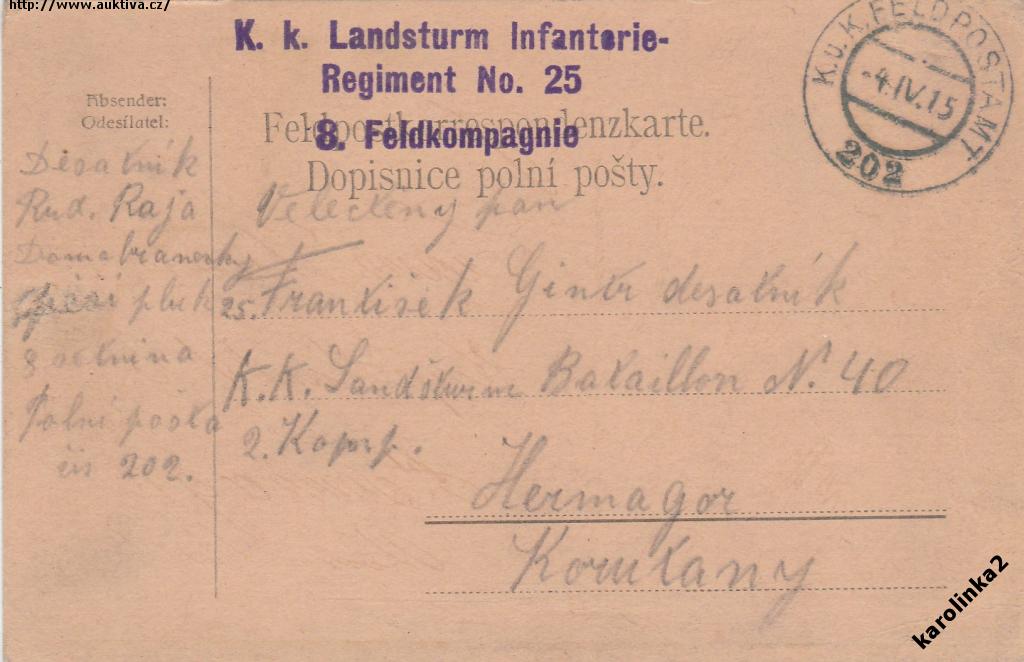 http://www.auktiva.cz/
K. k. Landsturm Infanterie-
Regiment No. 25
8. Feldkompagnie
K.u.K. FELDPOSTAMT
-4.IV.15
202
Feldpostkorrespondenzkarte.
Dopisnice polní pošty.
Absender:
Odesílatel:
Desatník
Rud. Raja
Domobranecky
pěší pluk 25.
8 setnina
Polní pošta
čís 202.
Velectěný pan
František Gintr desatník
K.K. Landšturm Bataillon N. 40
2. Komp.
Hermagor
Korutany
karolinka2